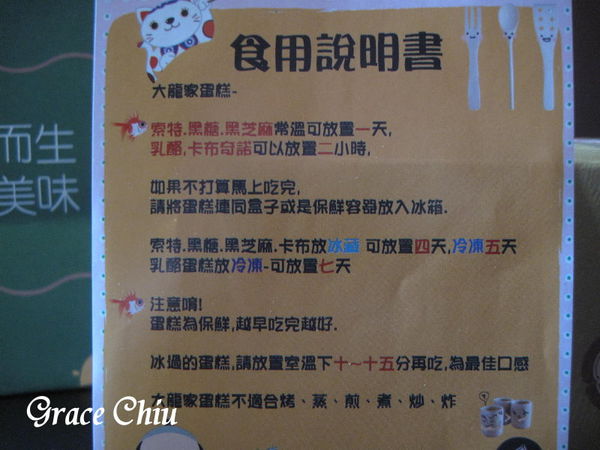 食用說明書
大龍家蛋糕-
索特.黑糖.黑芝麻常溫可放置一天,
乳酪,卡布奇諾可以放置二小時,
如果不打算馬上吃完,
請將蛋糕連同盒子或是保鮮容器放入冰箱.
索特.黑糖.黑芝麻.卡布放冰藏 可放置四天,冷凍五天
乳酪蛋糕放冷凍-可放置七天
注意唷!
蛋糕為保鮮,越早吃完越好.
冰過的蛋糕,請放置室溫下十~十五分再吃,為最佳口感
大龍家蛋糕不適合烤、蒸、煎、煮、炒、炸
而生
美味
Grace Chiu